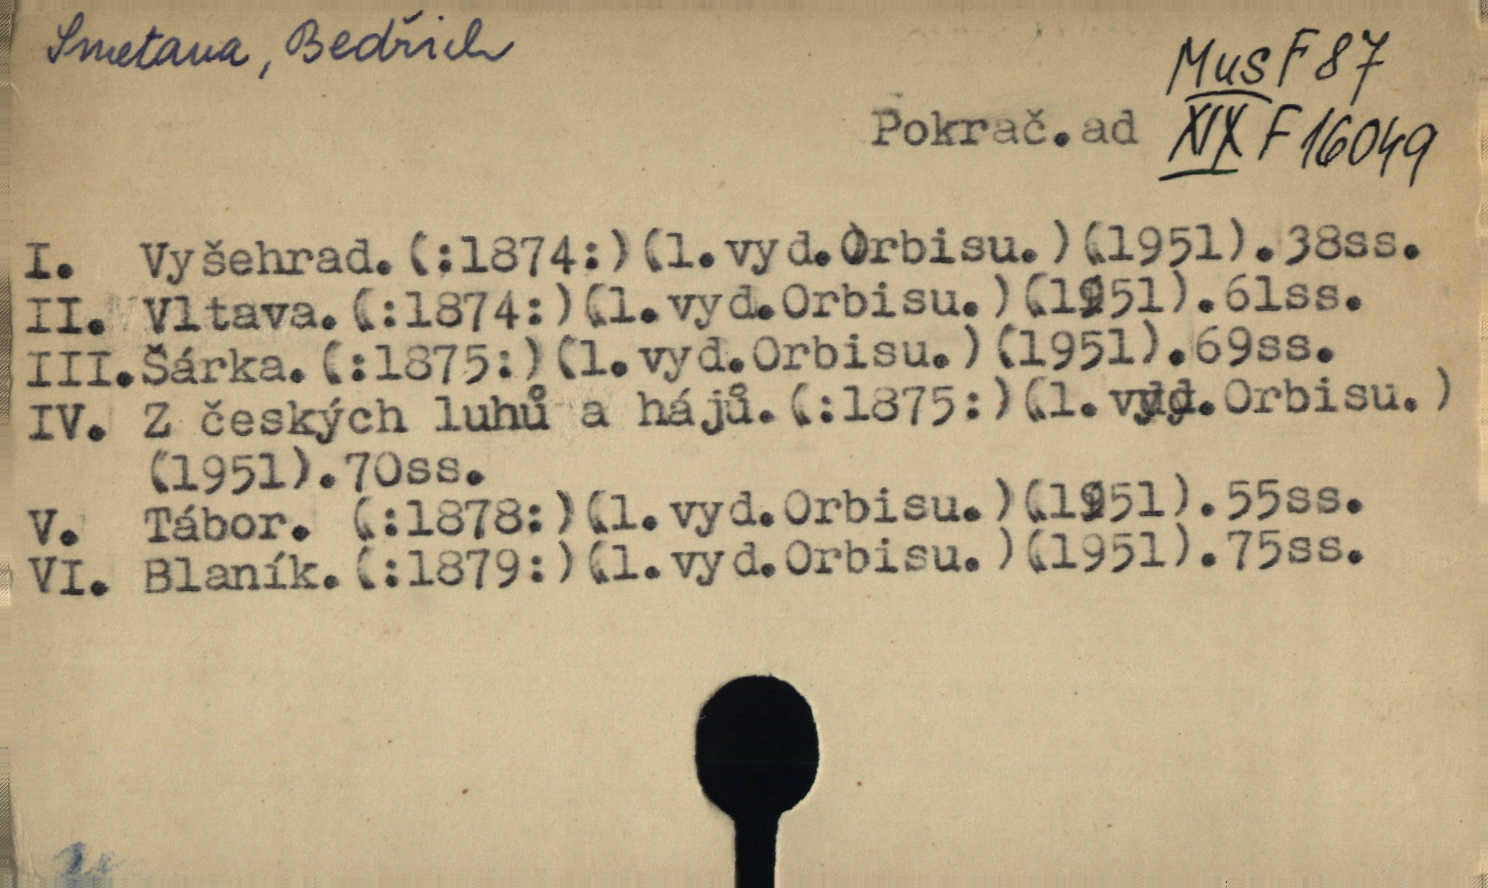 Smetana, Bedřich
Mus F 87
Pokrač.ad XIX F 16049
I. Vyšehrad.(:1874:)(1.vyd.Orbisu.)(1951).38ss.
II. Vltava.(:1874:)(1.vyd.Orbisu.)(1951).61ss.
III.Šárka.(:1875:)(1.vyd.Orbisu.)(1951).69ss.
IV. Z českých luhů a hájů.(:1875:)(1.vyd.Orbisu.)
(1951).70ss.
V. Tábor. (:1878:)(1.vyd.Orbisu.)(1951).55ss.
VI. Blaník.(:1879:)(1.vyd.Orbisu.)(1951).75ss.